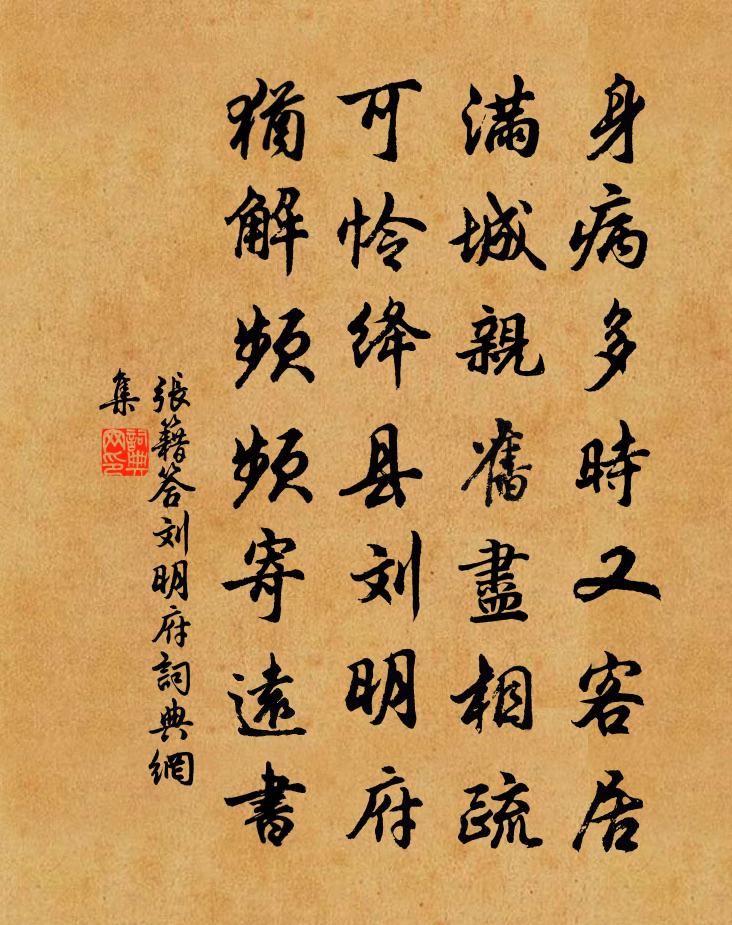 身病多時又客居
滿城親舊盡相疏
可怜绛县刘明府
猶解频频寄遠書
張籍答刘明府詞典網
集
詞典
网印